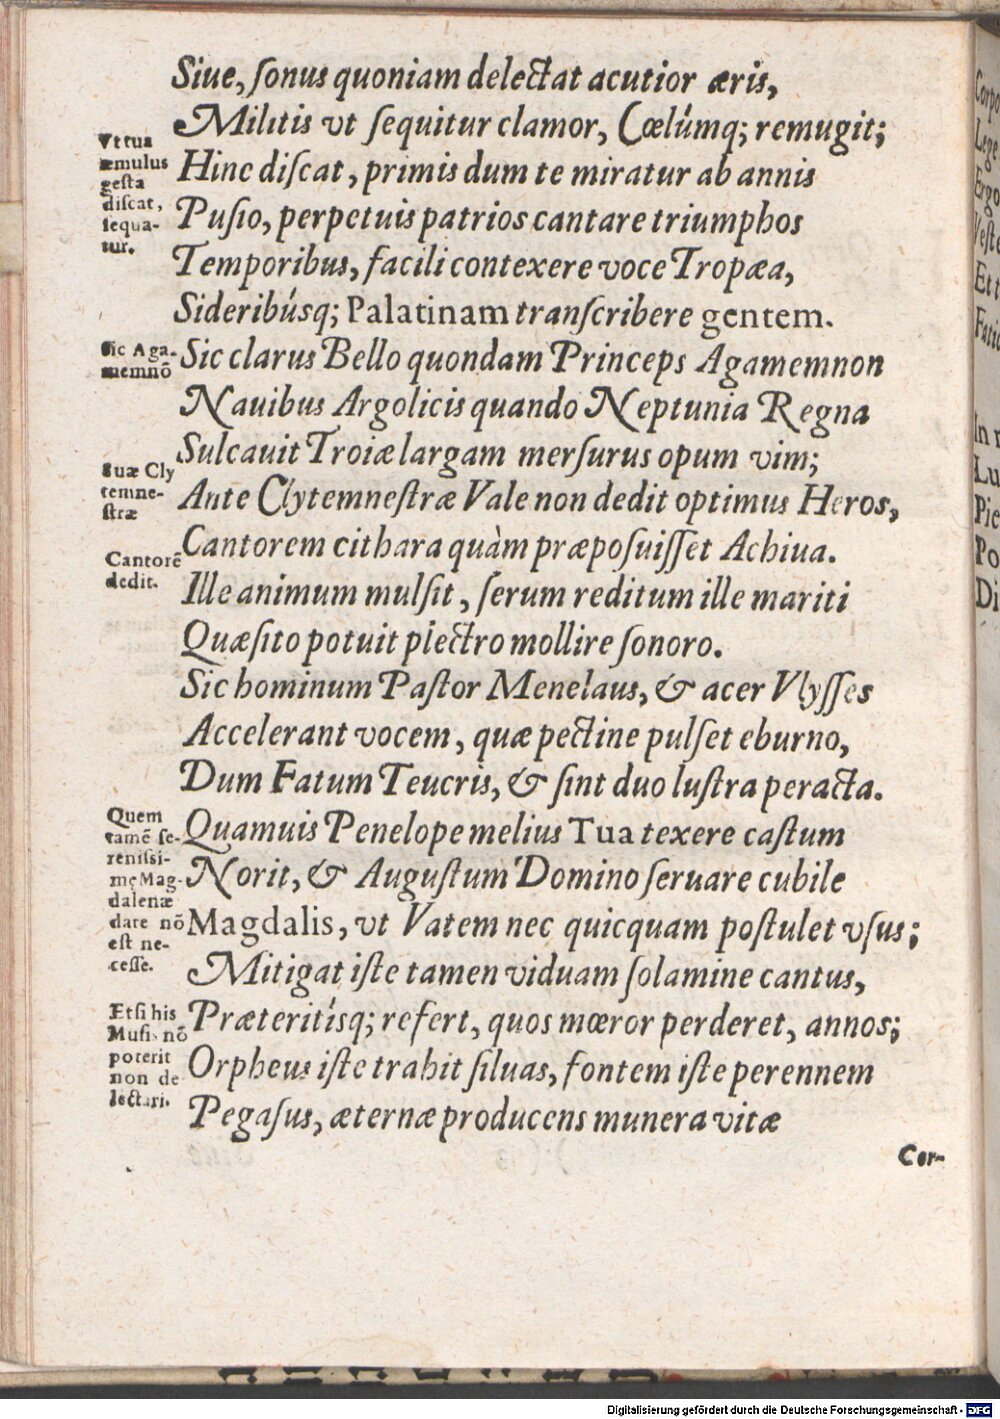 Siue, ſonus quoniam delectat acutior æris,
Militis vt ſequitur clamor, Cœlúmq; remugit;
Vt tua
æmulus
geſta
diſcat,
ſequa-
tur.
Hinc diſcat, primis dum te miratur ab annis
Puſio, perpetuis patrios cantare triumphos
Temporibus, facili contexere voce Tropæa,
Sideribúsq; Palatinam tranſcribere gentem.
Sic Aga-
memnō
Sic clarus Bello quondam Princeps Agamemnon
Nauibus Argolicis quando Neptunia Regna
Sulcauit Troiæ largam merſurus opum vim;
Suæ Cly
temne-
ſtræ
Ante Clytemneſtræ Vale non dedit optimus Heros,
Cantorē
dedit.
Cantorem cithara quàm præpoſuiſſet Achiua.
Ille animum mulſit, ſerum reditum ille mariti
Quæſito potuit plectro mollire ſonoro.
Sic hominum Paſtor Menelaus, & acer Vlyſſes
Accelerant vocem, quæ pectine pulſet eburno,
Dum Fatum Teucris, & ſint duo luſtra peracta.
Quem
tamē ſe-
reniſſi-
me Mag-
dalenæ
dare nō
eſt ne-
ceſſe.
Quamuis Penelope melius Tua texere caſtum
Norit, & Auguſtum Domino ſeruare cubile
Magdalis, vt Vatem nec quicquam poſtulet vſus;
Mitigat iſte tamen viduam ſolamine cantus,
Etſi his
Muſis nō
poterit
non de
lectari.
Præteritísq; refert, quos mœror perderet, annos;
Orpheus iſte trahit ſiluas, fontem iſte perennem
Pegaſus, æternæ producens munera vitæ
Cor-
Corpo
Lege
Ergo
Veſte
Et t
Fatic
In r
Lu
Pie
Po
Di
Digitalisierung gefördert durch die Deutsche Forschungsgemeinschaft - DFG